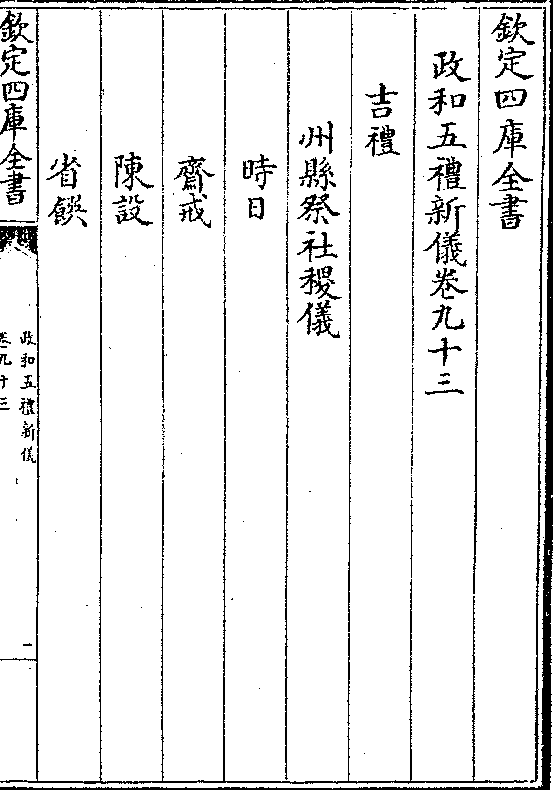 欽定四庫全書
政和五禮新儀卷九十三
吉禮
州縣祭社稷儀
時日
齋戒
陳設
省饌
欽定四庫全書
政和五禮新儀
卷九十三
一